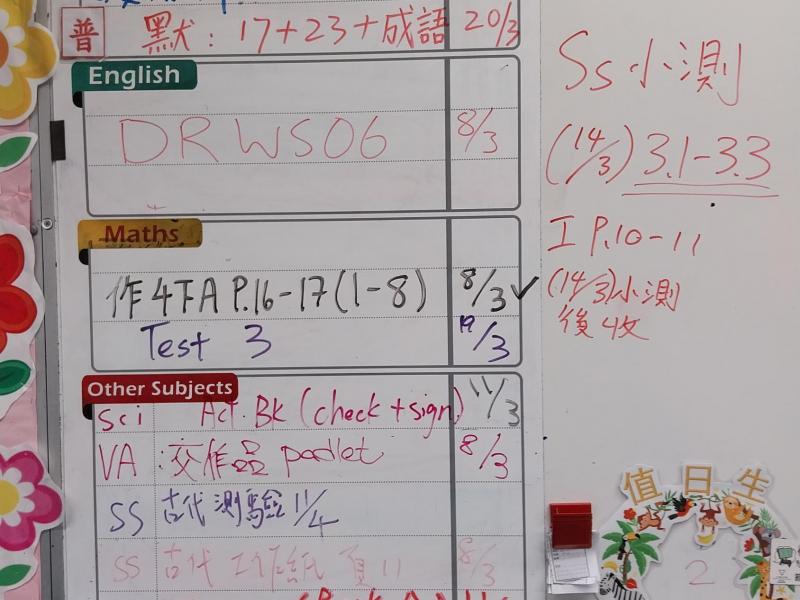 普 默：17+23+成語 20/3
English
DRWS06 8/3
Maths
作4下A P.16-17(1-8) 8/3 ✓
Test 3 19/3
Other Subjects
Sci Act. BK (check + sign) 11/3
VA：交作品 padlet 8/3
SS 古代測驗 11/4
SS 古代工作紙 頁11 8/3
Ss小測
(14/3) 3.1-3.3
工 P.10-11
(14/3)小測
後收
值日生
2